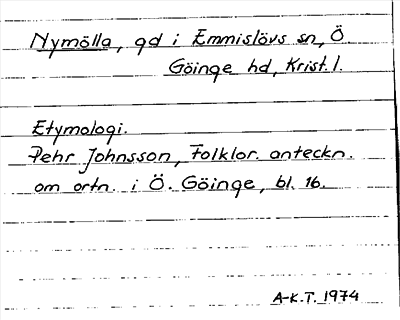 Nymölla, gd i Emmislövs sn, Ö.
Göinge hd, Krist. l.
Etymologi.
Pehr Johnsson, Folklor. anteckn.
om ortn. i Ö. Göinge, bl. 16.
A-K.T. 1974